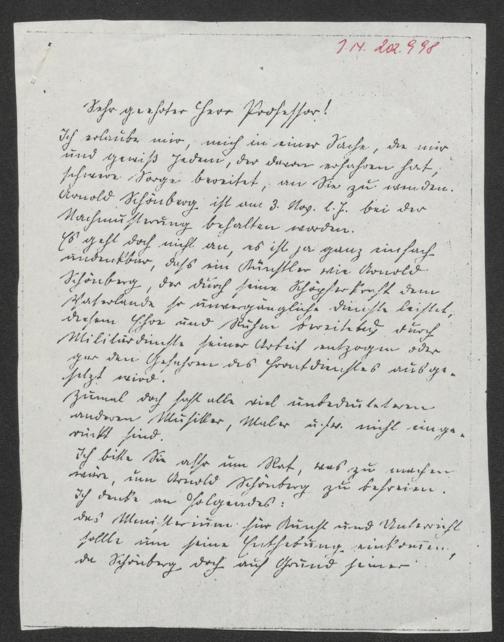 I N. 202.998
Sehr geehrter Herr Professor!
Ich erlaube mir, mich in einer Sache, die mir
und gewiß Jedem, der davon erfahren hat,
schwere Sorge bereitet, an Sie zu wenden.
Arnold Schönberg ist am 3. Nov. l. J. bei der
Nachmusterung behalten worden.
Es geht doch nicht an, es ist ja ganz einfach
undenkbar, dass ein Künstler wie Arnold
Schönberg, der durch seine Schöpferkraft dem
Vaterlande so unvergängliche Dienste leistet,
diesem Ehre und Ruhm bereitet, durch
Militärdienste seiner Arbeit entzogen oder
gar den Gefahren des Frontdienstes ausge-
setzt wird.
Zumal doch fast alle viel unbedeuteteren
anderen Musiker, Maler u.s.w. nicht einge-
rückt sind.
Ich bitte Sie also um Rat, was zu machen
wäre, um Arnold Schönberg zu befreien.
Ich denke an Folgendes:
das Ministerium für Kunst und Unterricht
sollte um seine Enthebung einkommen,
da Schönberg doch auf Grund seiner